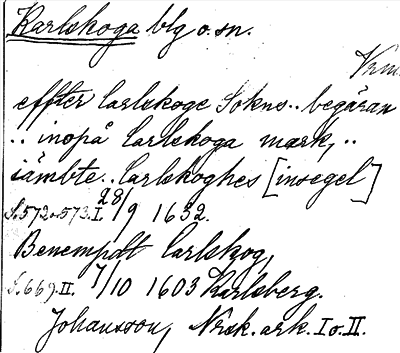 Karlskoga blg o. sn.
Vrm.
effter Carlskoge Sokns.. begäran
.. inopå Carlskoga mark, ..
iämbte.. Carlskoghes [insegel]
S. 572 o. 573. I. 28/9 1632.
Benempdt Carlskog,
S. 669. II. 7/10 1603 Karlsberg.
Johansson, Nrsk. ark. I o. II.